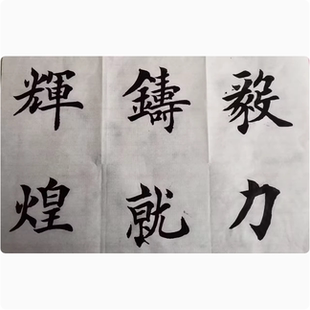 毅力
鑄就
輝煌